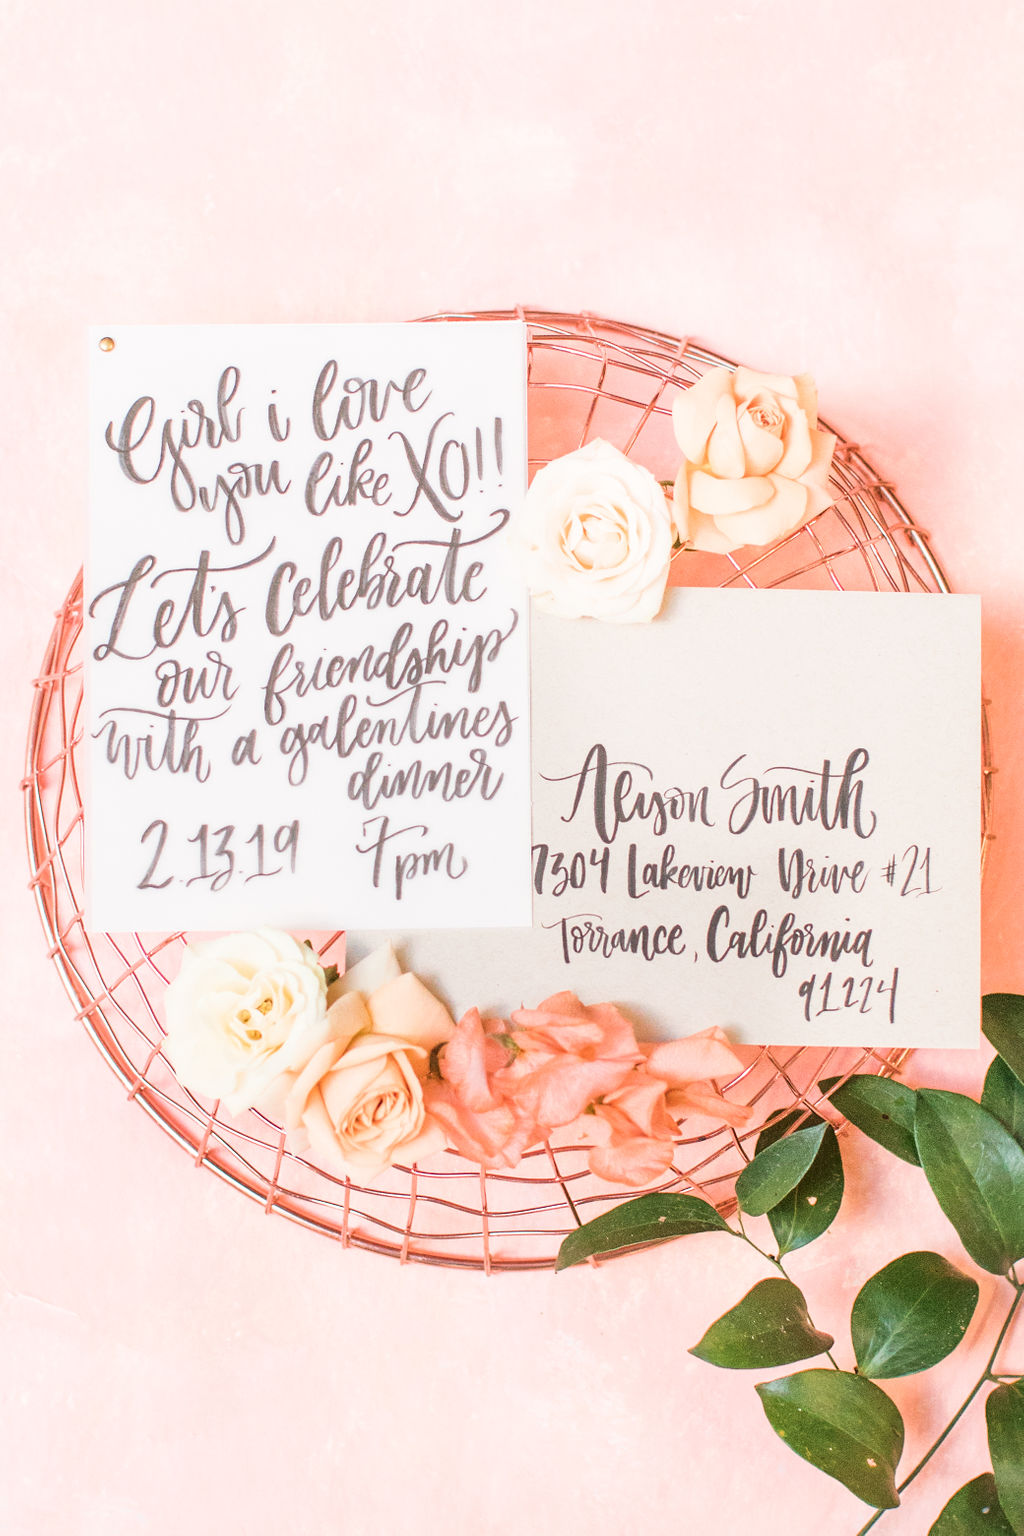 Girl i love
you like XO!!
Let's Celebrate
our friendship
with a galentines
dinner
2.13.19 7pm
Alyson Smith
7304 Lakeview Drive #21
Torrance, California
91224